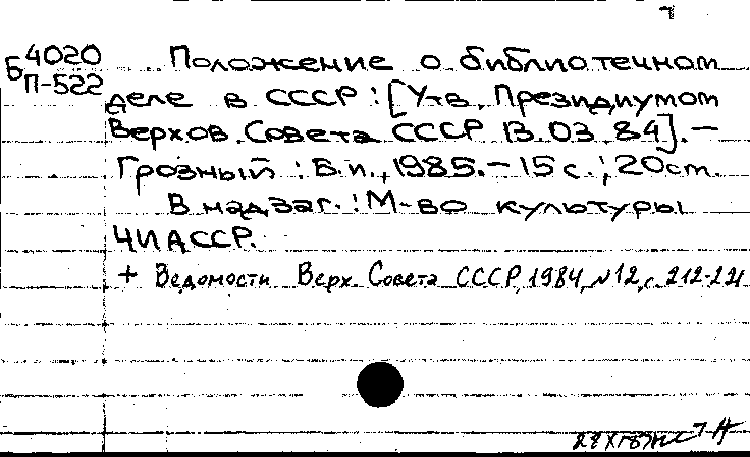 Б 4020
П-522
Положение о библиотечном
деле в СССР : [Утв. Президиумом
Верхов. Совета СССР 13.03.84]. –
Грозный : Б.и., 1985. – 15 с. ; 20 см.
В надзаг. : М-во культуры
ЧИАССР.
+ Ведомости Верх. Совета СССР, 1984, №12, с. 212-221